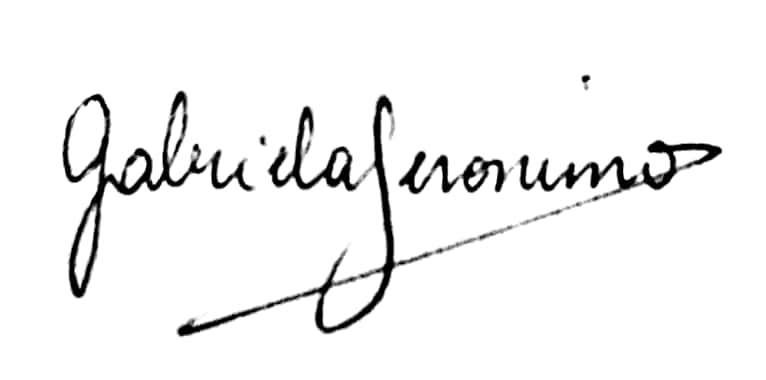 Gabriela Jeronimo